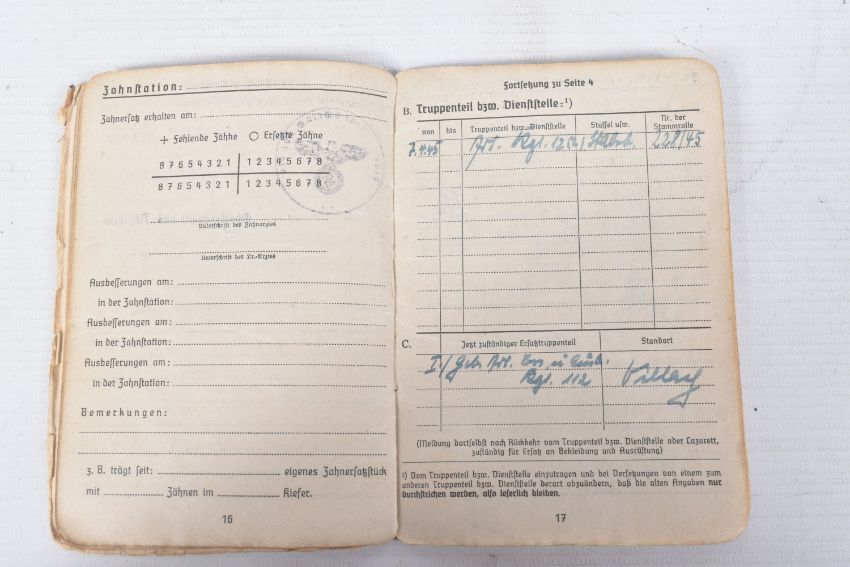 Zahnstation:
Zahnersatz erhalten am:
+ Fehlende Zähne O Ersetzte Zähne
8 7 6 5 4 3 2 1 1 2 3 4 5 6 7 8
8 7 6 5 4 3 2 1 1 2 3 4 5 6 7 8
Unterschrift des Zahnarztes
Unterschrift des Tr.-Arztes
Ausbesserungen am:
in der Zahnstation:
Ausbesserungen am:
in der Zahnstation:
Ausbesserungen am:
in der Zahnstation:
Bemerkungen:
z. B. trägt seit: eigenes Zahnersatzstück
mit Zähnen im Kiefer.
16
Fortsetzung zu Seite 4
B. Truppenteil bzw. Dienststelle:¹)
von bis Truppenteil bzw. Dienststelle Staffel usw. Nr. der Stammrolle
7.4.45 Art. Rgt. 112 228/45
C. Jetzt zuständiger Ersatztruppenteil Standort
I./Geb. Art. Ers. u. Ausb. Villach
Rgt. 112
(Meldung dortselbst nach Rückkehr vom Truppenteil bzw. Dienststelle oder Lazarett,
zuständig für Ersatz an Bekleidung und Ausrüstung)
¹) Vom Truppenteil bzw. Dienststelle einzutragen und bei Versetzungen von einem zum
anderen Truppenteil bzw. Dienststelle derart abzuändern, daß die alten Angaben nur
durchstrichen werden, also leserlich bleiben.
17